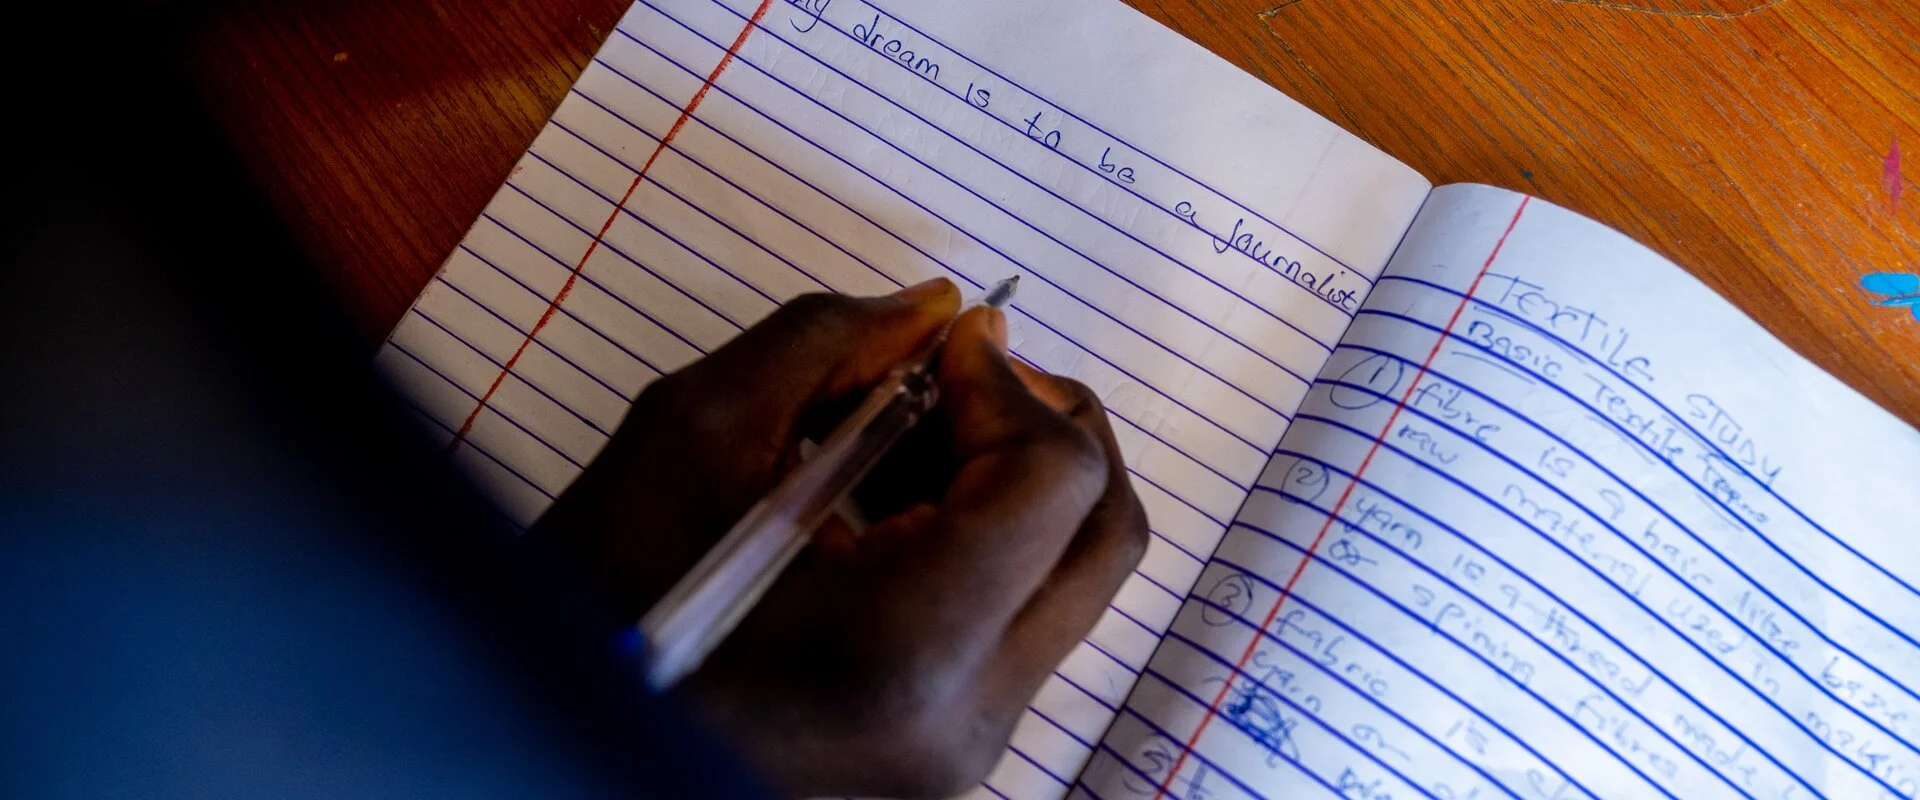 my dream is to be a journalist
TEXTILE STUDY
Basic Textile Terms
① fibre is a hair like base
raw material used in making
② yarn is a thread made
or spining fibres
③ fabric is
yarn or